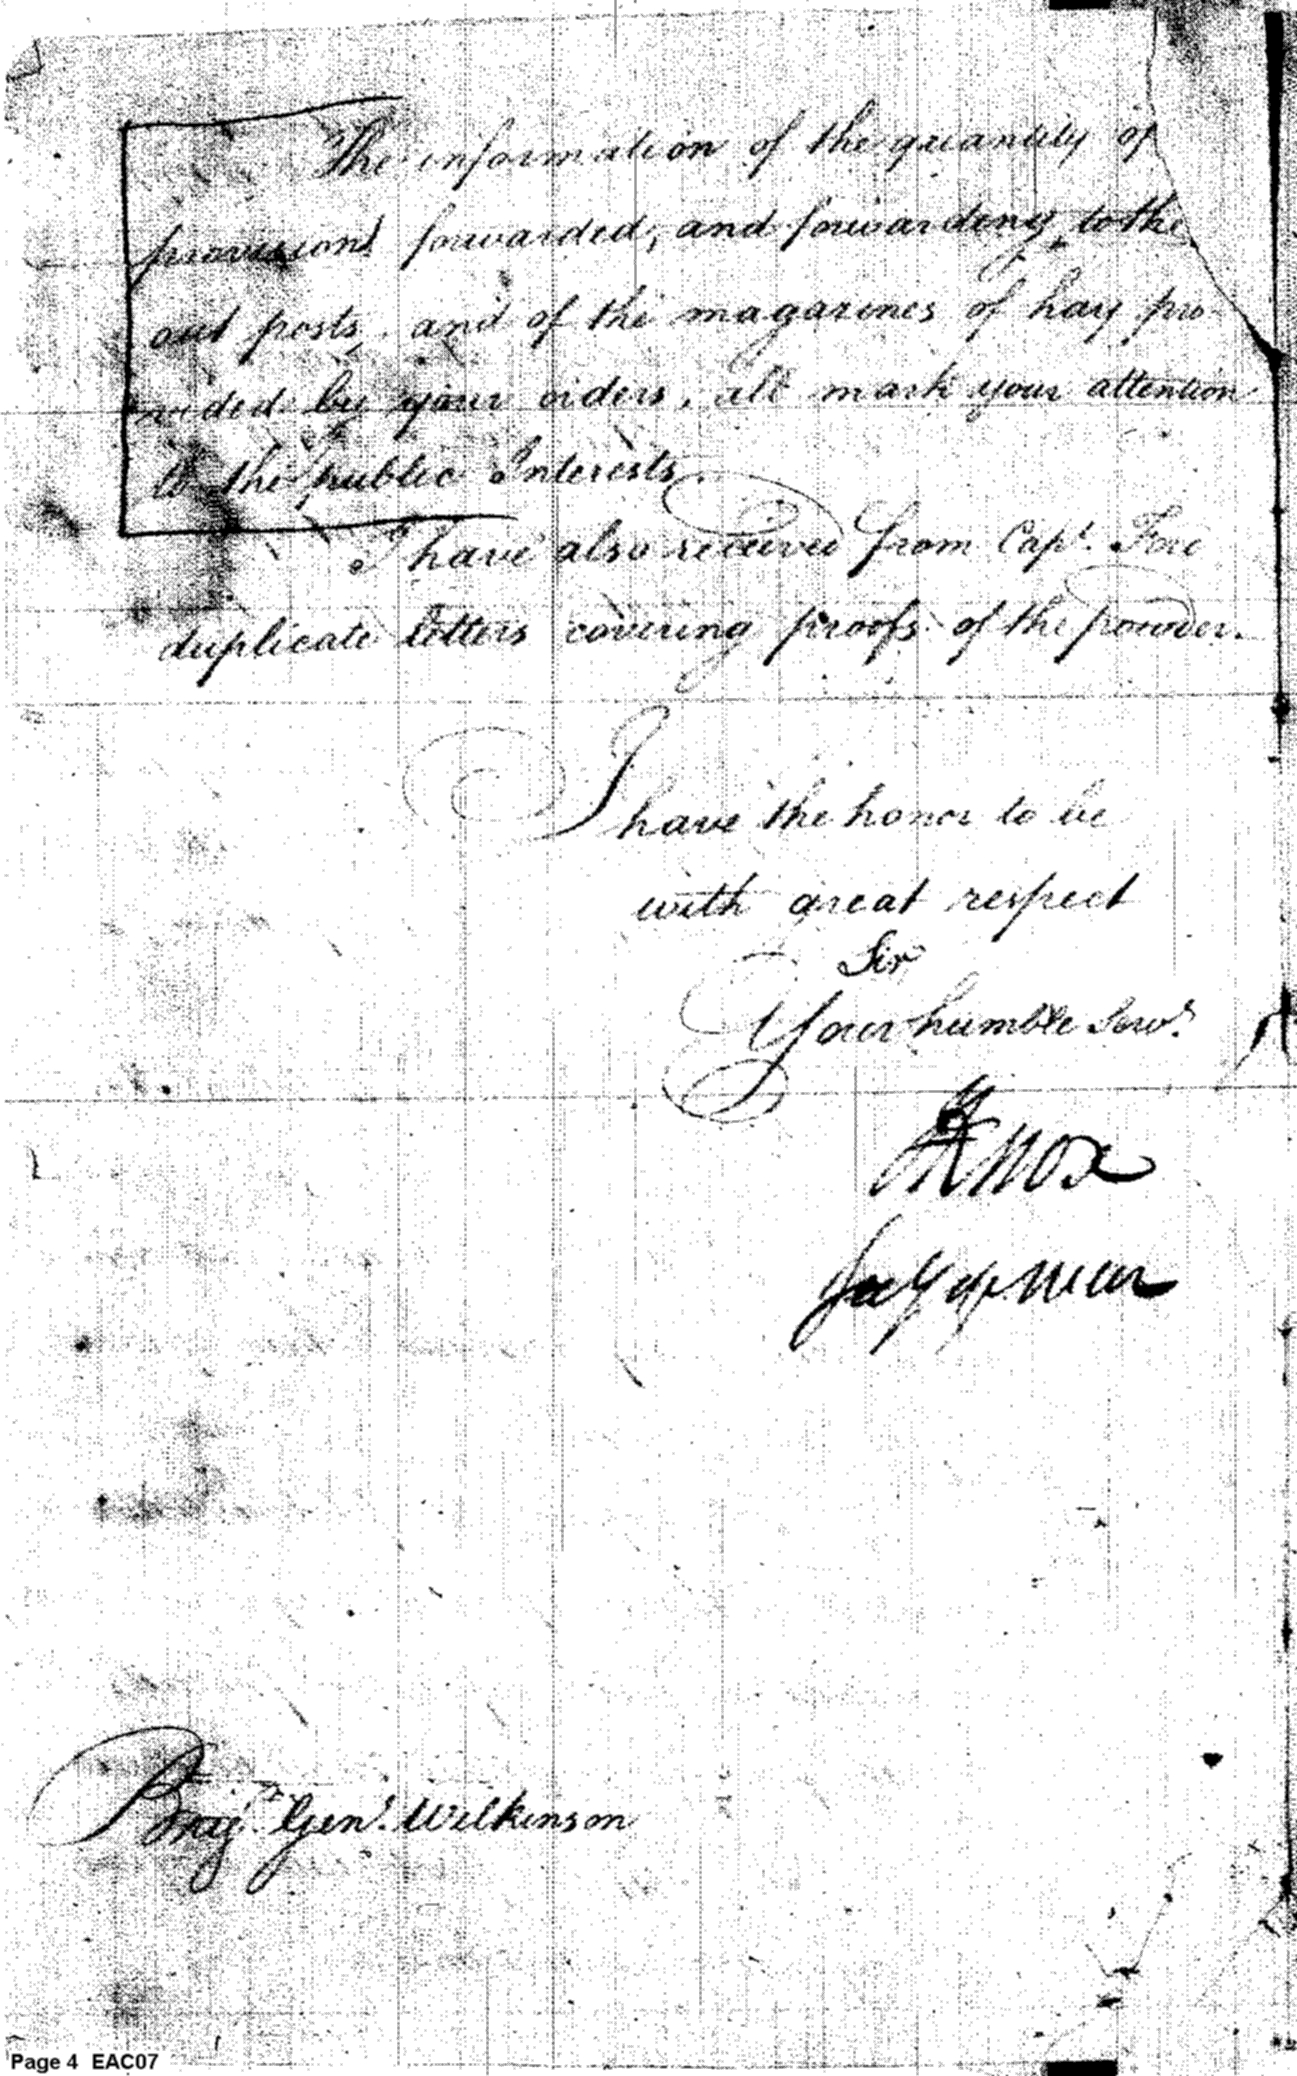 The information of the quantity of
provisions forwarded, and forwarding, to the
out posts, and of the magazines of hay pro-
vided by your orders, all mark your attention
to the public Interests.
I have also received from Capt. Ford
duplicate letters covering proofs of the powder.
I have the honor to be
with great respect
Sir
Your humble Servt.
HKnox
Secy of War
Brig. Genl. Wilkinson
Page 4 EAC07